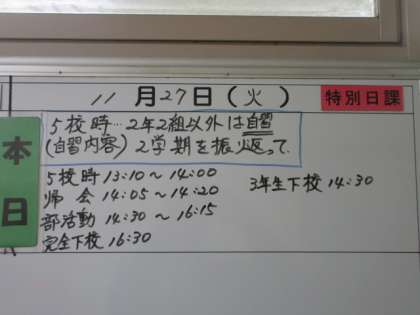 11月27日(火)
特別日課
本日
5校時…2年2組以外は自習
(自習内容)2学期を振り返って
5校時13:10～14:00
帰会14:05～14:20
3年生下校14:30
部活動14:30～16:15
完全下校16:30